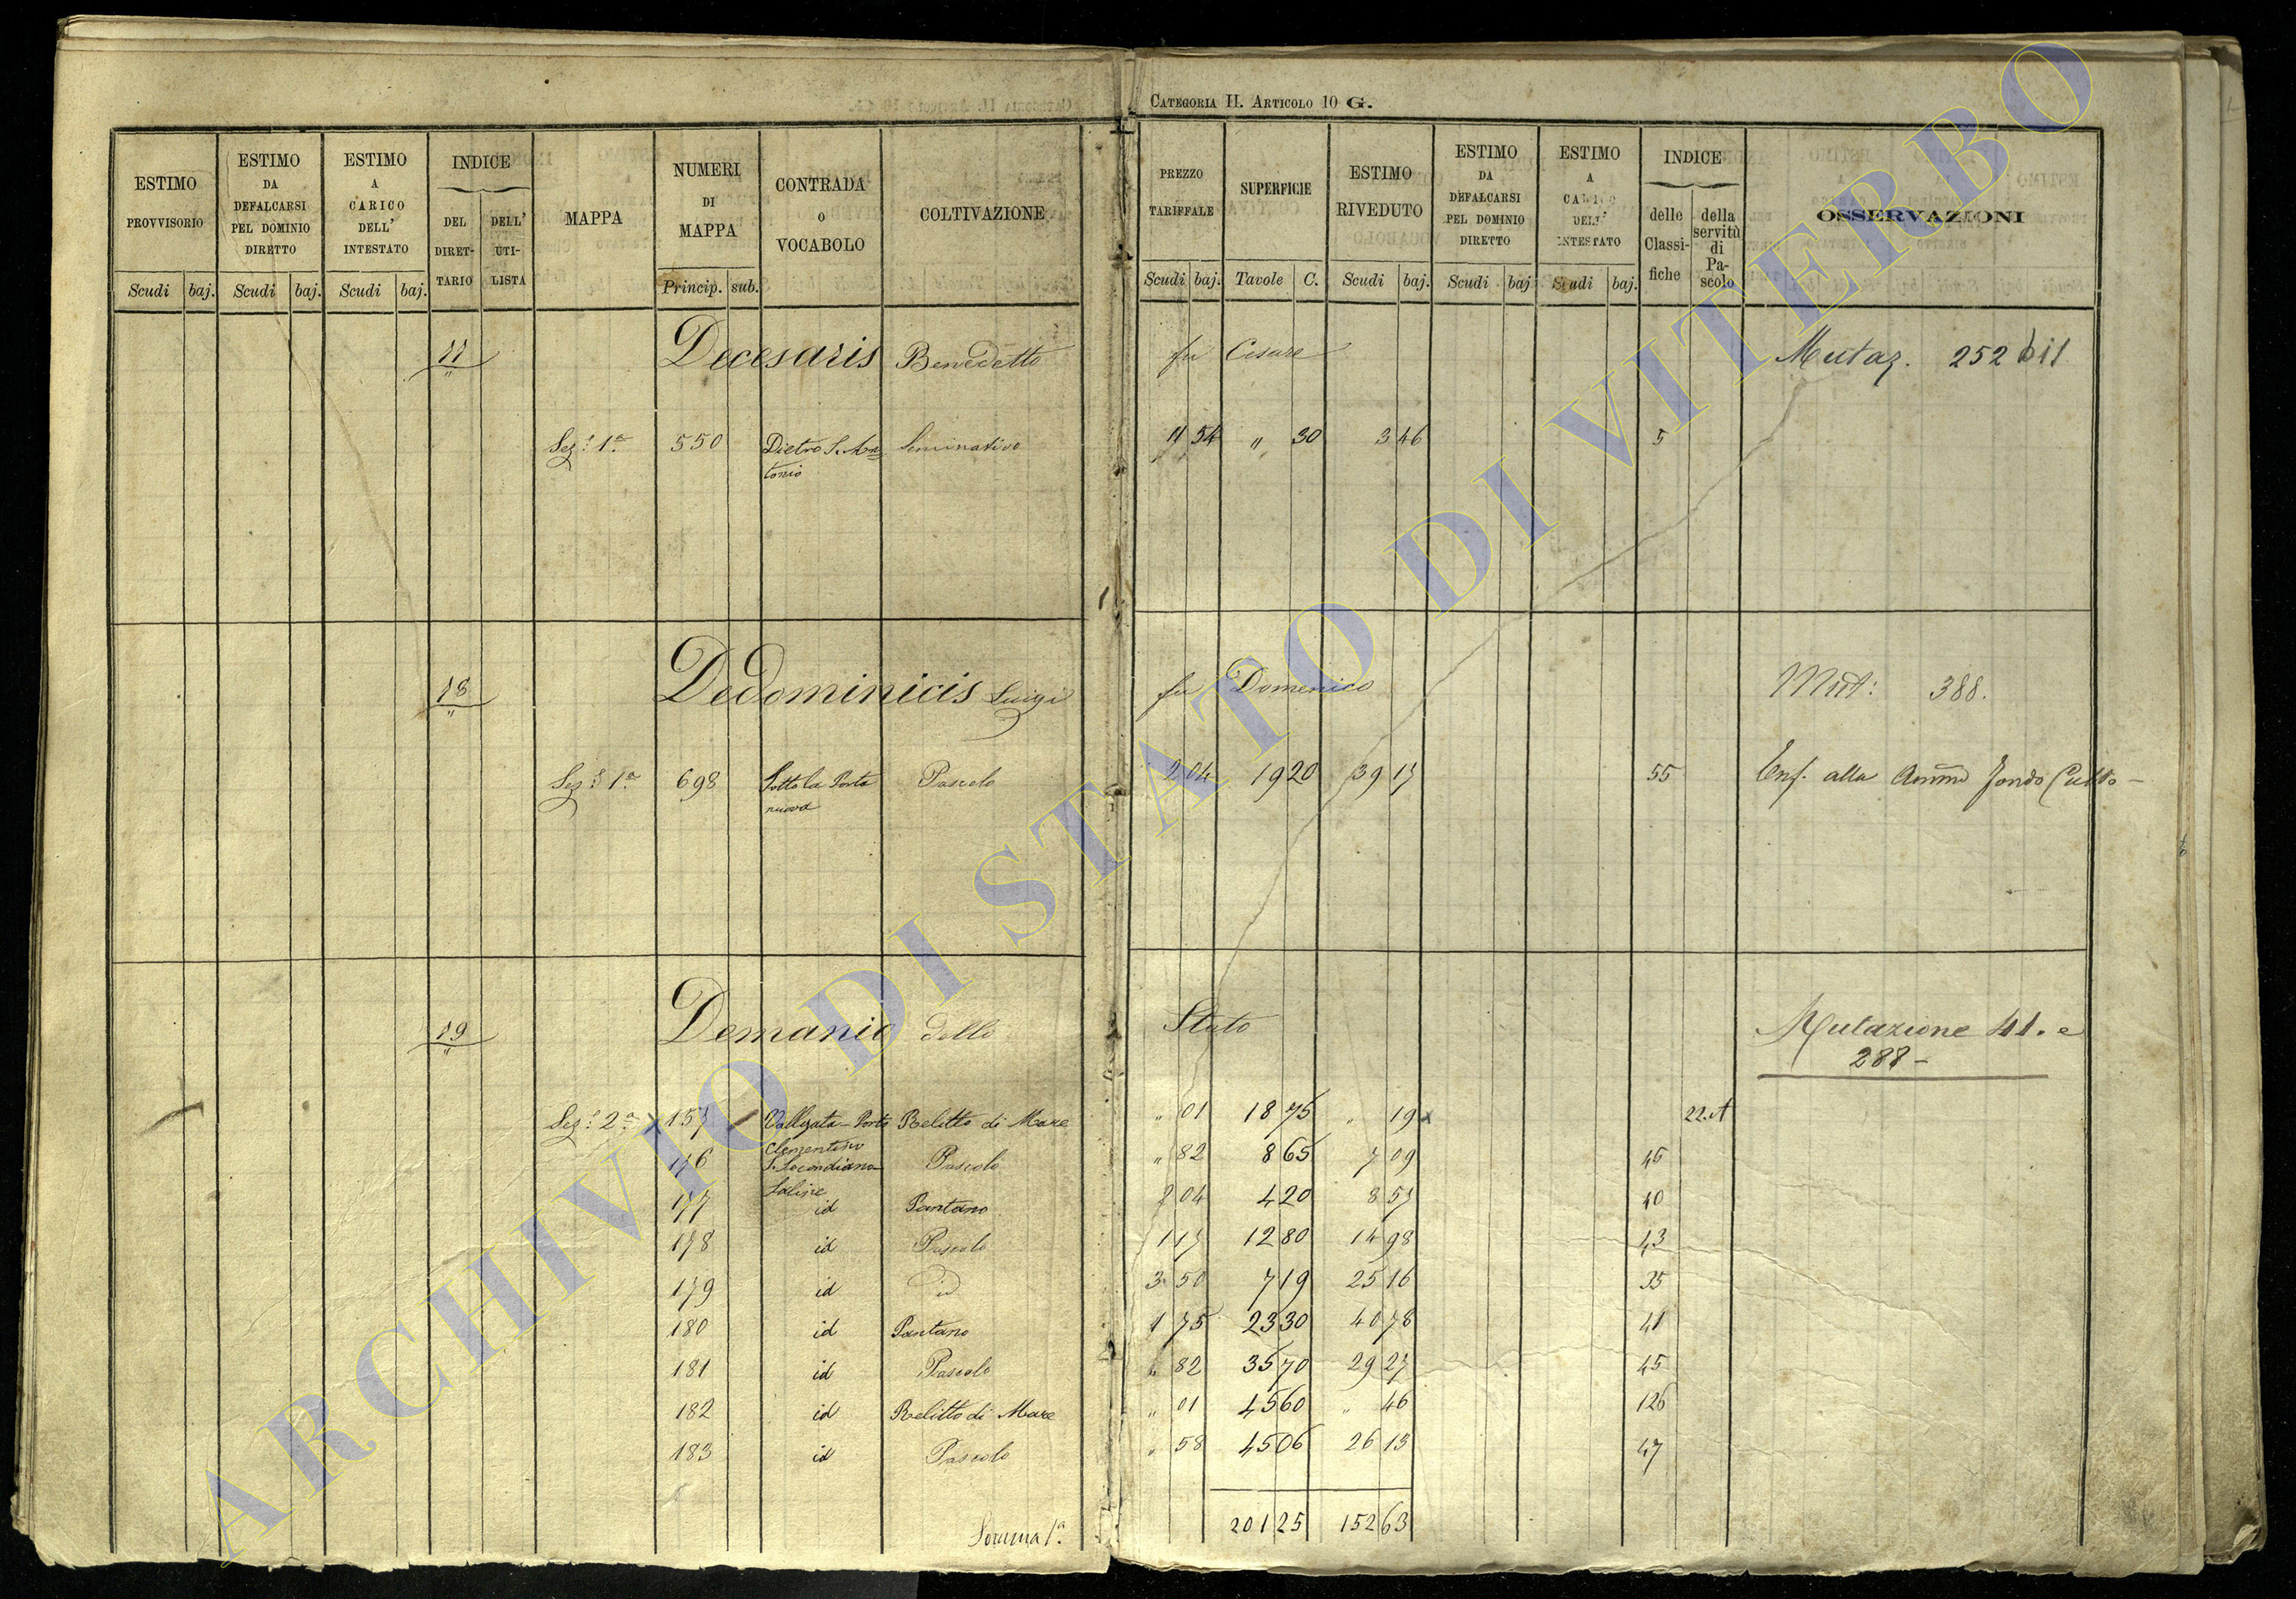 CATEGORIA II. ARTICOLO 10 G.
ESTIMO PROVVISORIO Scudi baj. ESTIMO DA DEFALCARSI PEL DOMINIO DIRETTO Scudi baj. ESTIMO A CARICO DELL' INTESTATO Scudi baj. INDICE DEL DIRETTARIO DELL' UTILISTA MAPPA NUMERI DI MAPPA Princip. sub. CONTRADA O VOCABOLO COLTIVAZIONE PREZZO TARIFFALE Scudi baj. SUPERFICIE Tavole C. ESTIMO RIVEDUTO Scudi baj. ESTIMO DA DEFALCARSI PEL DOMINIO DIRETTO Scudi baj ESTIMO A CARICO DELL' INTESTATO Scudi baj. INDICE delle Classifiche della servitù di Pascolo OSSERVAZIONI
Decesaris Benedetto fu Cesare Mutaz. 252
Sez.e 1a. 550 Dietro S. An= Seminativo 54 " 30 3 46 5
tonio
18 Dedominicis Luigi fu Domenico Mut: 388.
Sez.e 1a. 698 Sotto la Porta Pascolo 2 04 19 20 39 17 55 Enf. alla Fondo Culto
nuova
19 Demanio dello Stato Mutazione 41. e
" 288 -
Sez.e 2a. x 157 Vallegata - Porto Relitto di Mare " 01 18 75 " 19 x 22.A
Clementino
176 S. Secondiano Pascolo " 82 8 65 7 09 45
Saline
177 id Pantano 2 04 4 20 8 57 40
178 id Pascolo 1 17 12 80 14 98 43
179 id id 3 50 7 19 25 16 35
180 id Pantano 1 75 23 30 40 78 41
181 id Pascolo " 82 35 70 29 27 45
182 id Relitto di Mare " 01 45 60 " 46 126
183 id Pascolo " 58 45 06 26 13 47
Somma 1a. 201 25 152 63
ARCHIVIO DI STATO DI VITERBO